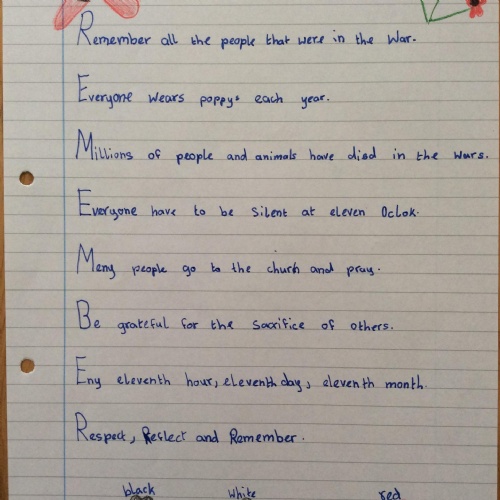 Remember all the people that were in the War.
Everyone wears poppys each year.
Millions of people and animals have died in the wars.
Everyone have to be silent at eleven Oclok.
Meny people go to the church and pray.
Be grateful for the sacrifice of others.
Eny eleventh hour, eleventh day, eleventh month.
Respect, Reflect and Remember.
black white red